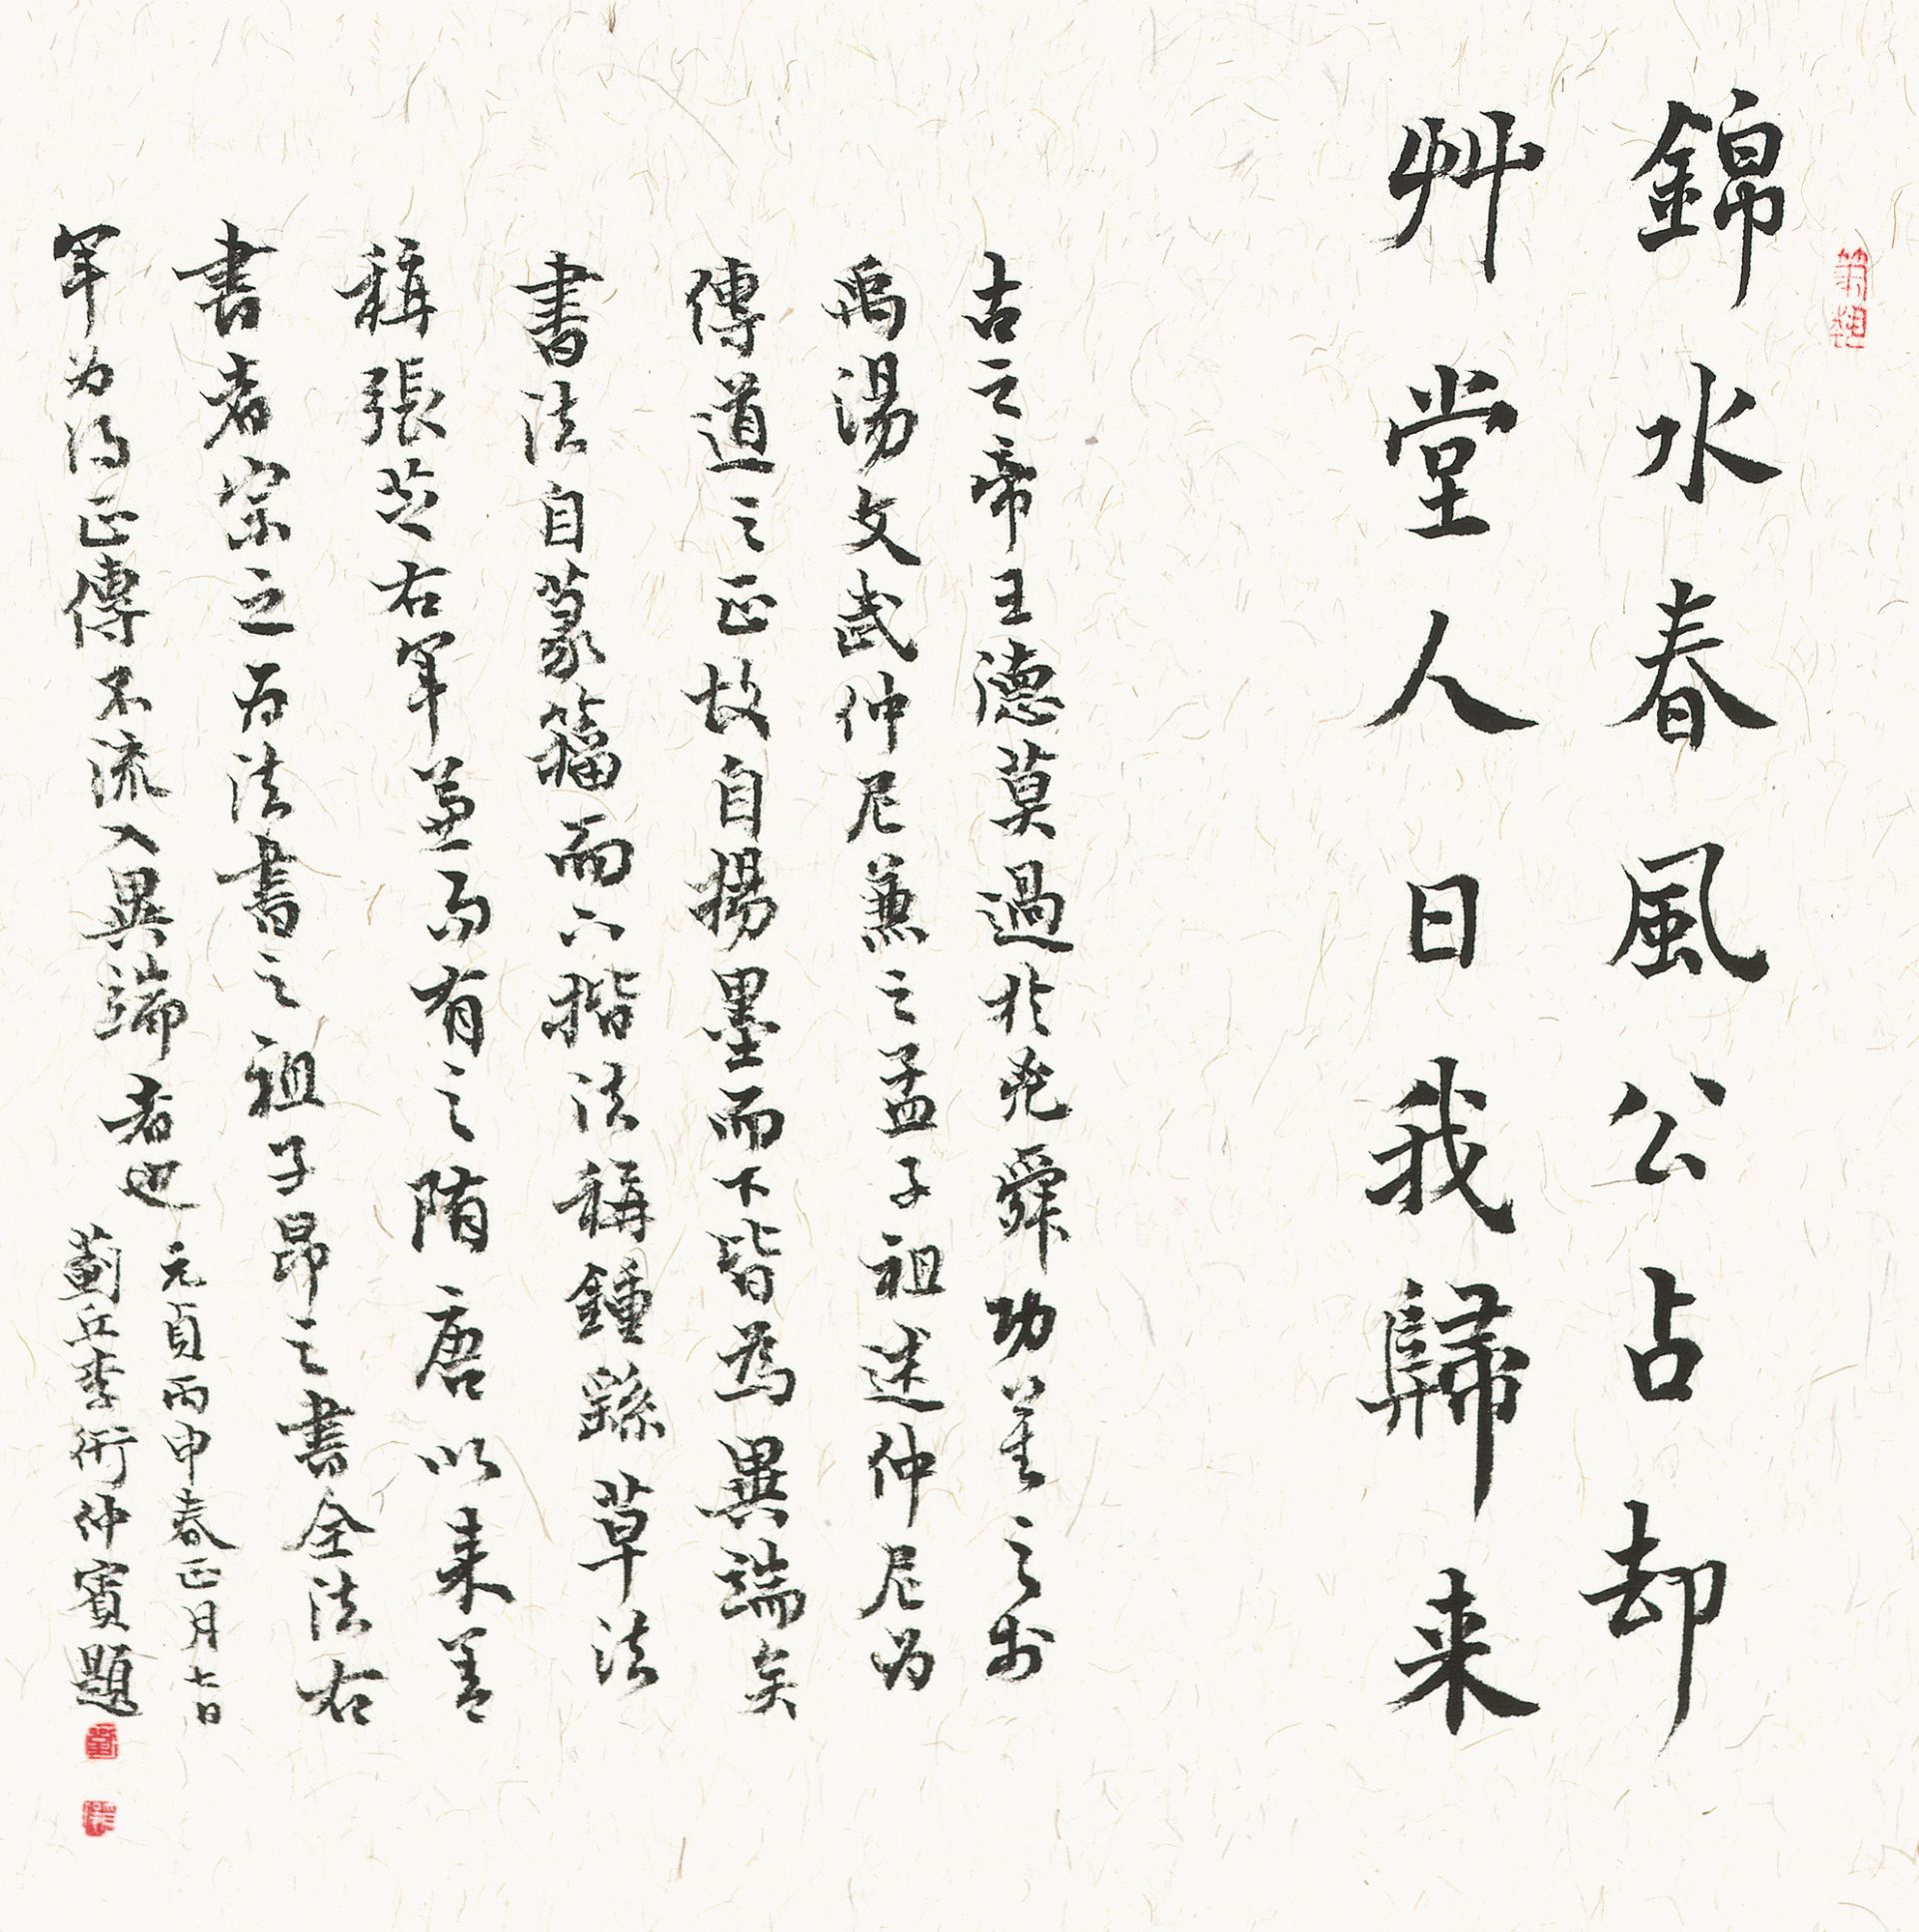 錦水春風公占却
艸堂人日我歸来
古之帝王德莫過於尧舜功莫之於
禹湯文武仲尼兼之孟子祖述仲尼为
傳道之正故自楊墨而下皆為異端矣
書法自篆籀而下楷法稱鍾繇草法
稱張芝右军並而有之隋唐以来善
書者宗之为法書之祖子昂之書全法右
军为得正傳不流入異端者也
元貞丙申春正月七日
薊丘李衎仲賓題